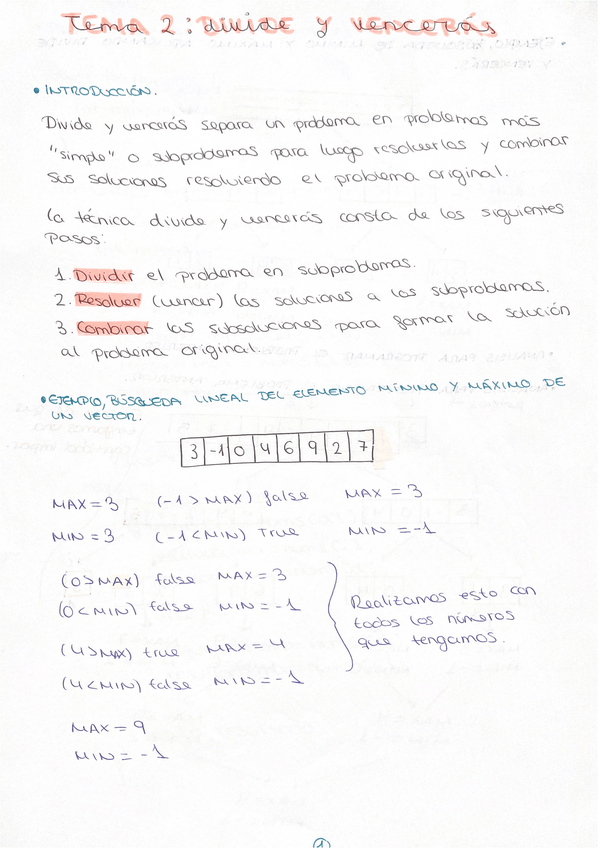 Tema 2: divide y vencerás
• INTRODUCCIÓN.
Divide y vencerás separa un problema en problemas más
"simple" o subproblemas para luego resolverlos y combinar
sus soluciones resolviendo el problema original.
La técnica divide y vencerás consta de los siguientes
pasos:
1. Dividir el problema en subproblemas.
2. Resolver (vencer) las soluciones a los subproblemas.
3. Combinar las subsoluciones para formar la solución
al problema original.
• EJEMPLO, BÚSQUEDA LINEAL DEL ELEMENTO MÍNIMO Y MÁXIMO DE
UN VECTOR.
3 -1 0 4 6 9 2 7
MAX = 3 (-1 > MAX) false MAX = 3
MIN = 3 (-1 < MIN) True MIN = -1
(0 > MAX) false MAX = 3
(0 < MIN) false MIN = -1
(4 > MAX) true MAX = 4
(4 < MIN) false MIN = -1
Realizamos esto con
todos los números
que tengamos.
MAX = 9
MIN = -1
1